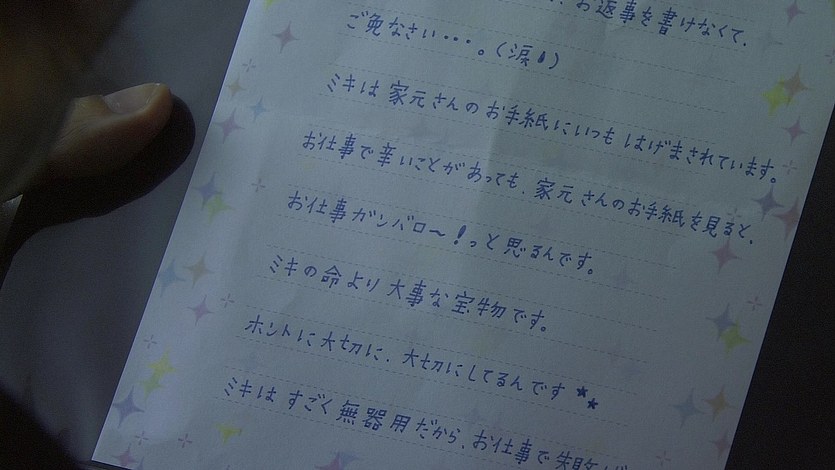 お返事を書けなくて、
ご免なさい・・・。(涙)
ミキは家元さんのお手紙にいつもはげまされています。
お仕事で辛いことがあっても、家元さんのお手紙を見ると、
お仕事ガンバロ〜!っと思るんです。
ミキの命より大事な宝物です。
ホントに大切に、大切にしてるんです★★
ミキはすごく無器用だから、お仕事で失敗